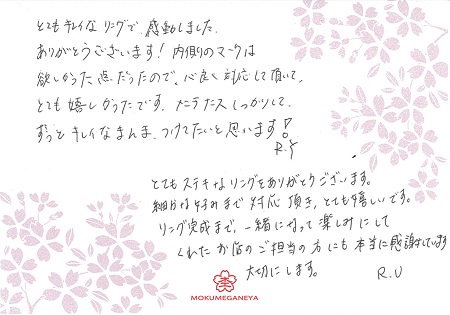 とてもキレイなリングで、感動しました。
ありがとうございます！内側のマークは
欲しかった点だったので、心良く対応して頂いて、
とても嬉しかったです。メンテナンスしっかりして、
ずっとキレイなまんま、つけてたいと思います！
R.Y
とてもステキなリングをありがとうございます。
細かな好みまで対応頂き、とても嬉しいです。
リング完成まで、一緒になって楽しみにして
くれたお店のご担当の方にも本当に感謝しています
大切にします。
R.U
MOKUMEGANEYA